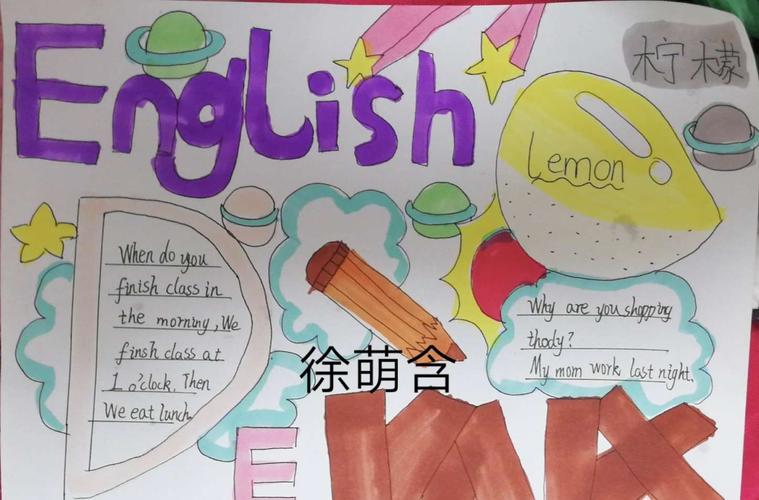 English
柠檬
Lemon
When do you
finish class in
the morning, We
finsh class at
1 o'clock. Then
We eat lunch.
Why are you shopping
thody?
My mom work last night.
徐萌含
E